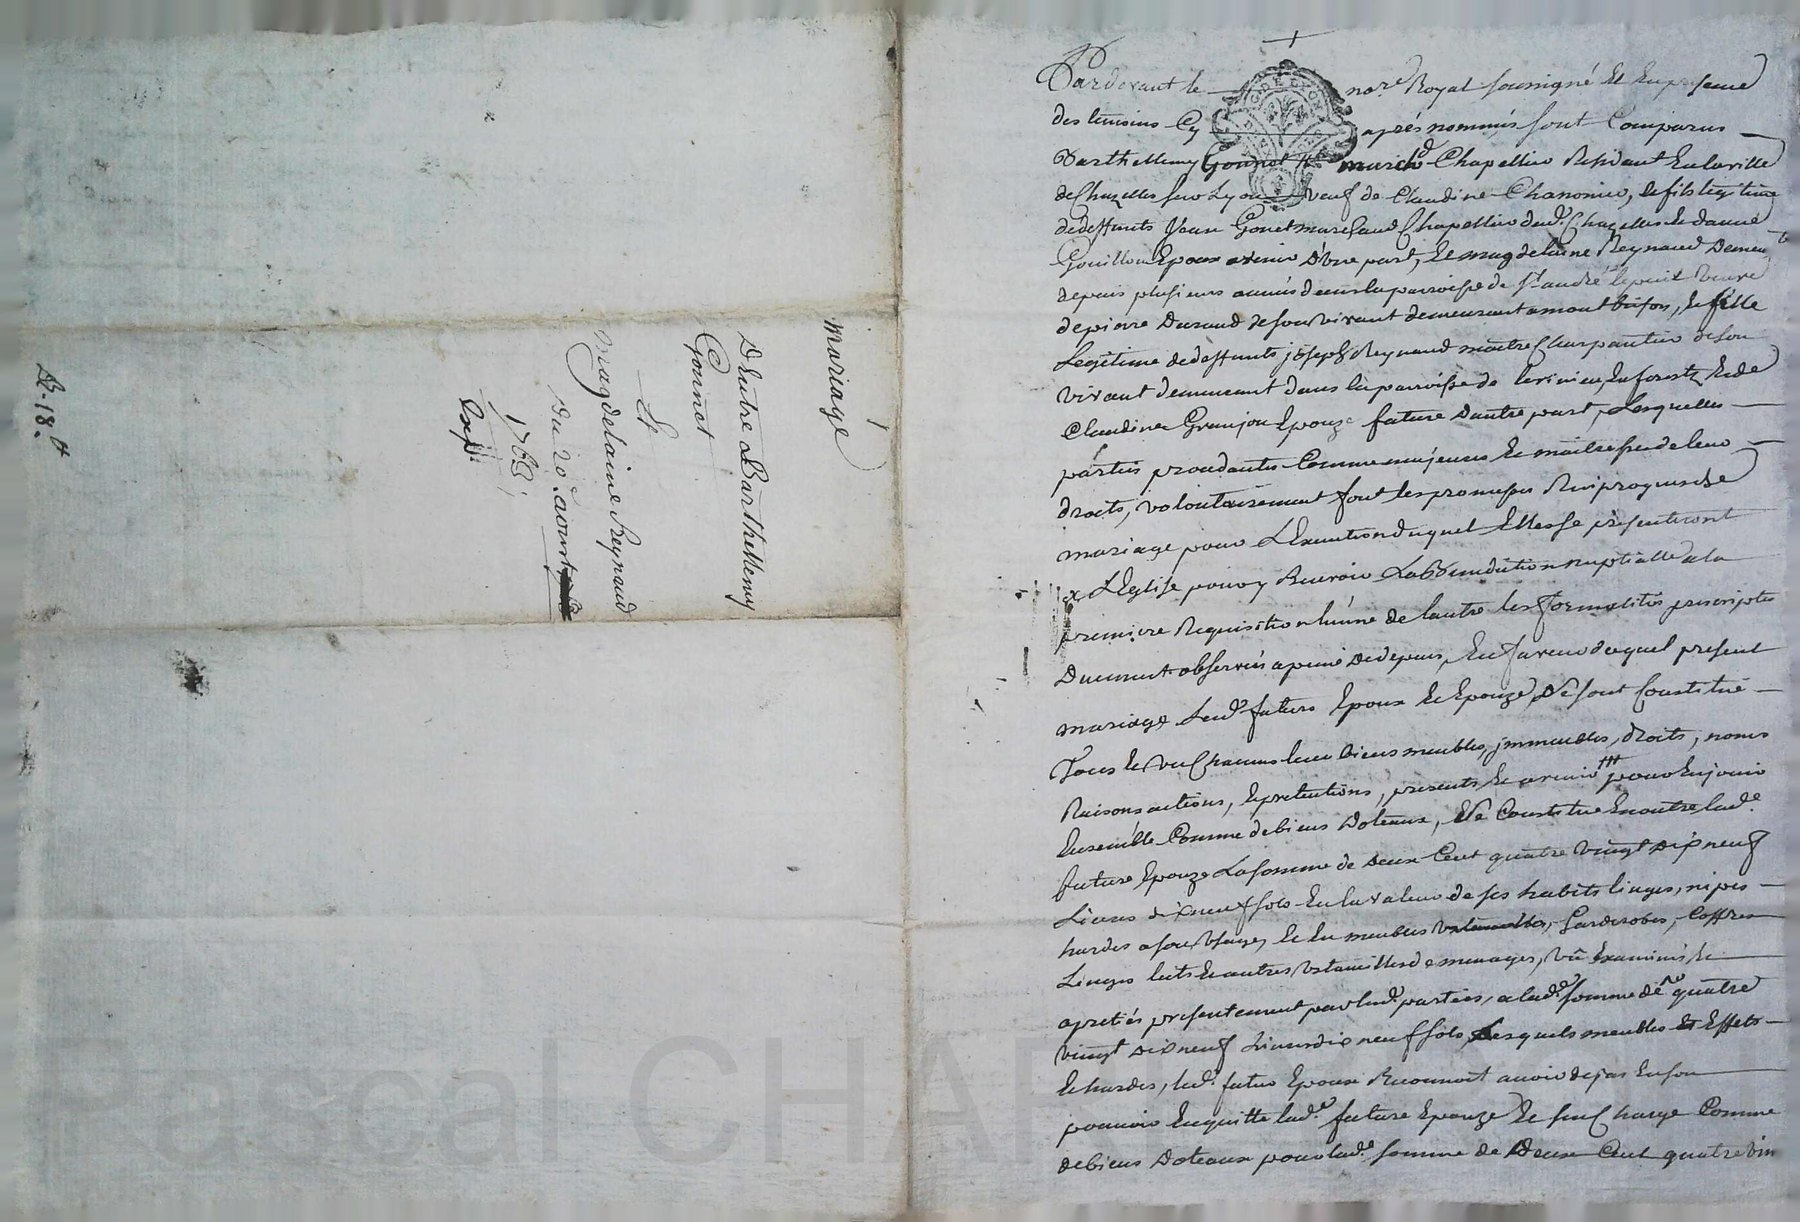 mariage
D'Entre Barthellemy
Gonnet
Et
magdelaine Reynaud
Du 20e aoust
1768
Exp.
B. 18.
Pardevant le notre Royal soussigné Et En presence
des temoins Cy après nommés sont Comparus
Barthellemy Gonnet marchd Chapellier Residant En la ville
de Chazelles sur Lyon veuf de Claudine Chanonier, et fils legitime
de deffunts Jean Gonet marchand Chapellier dud. Chazelles et de anne
Gouillon Epoux avenir d'Une part, Et magdelaine Reynaud Demeurt
depuis plusieurs années dans la parroisse de St andré le puit veuve
de pierre Durand de son vivant demeurant a montbrison, et fille
Legitime de deffunts joseph Reynaud maitre Charpentier de son
vivant demeurant dans la parroisse de En forest Et de
Claudine Granjon Epouze future D'autre part, Lesquelles
parties procedantes Comme majeures Et maitresse de leur
droits, volontairement font les promesses Reciproques de
mariage pour L'Execution duquel Elles se presenteront
a L'Eglise pour y Recevoir La Benediction nuptialle a la
premiere Requisition L'une de l'autre les formalités prescriptes
Duement observées a peine De depens, En faveur duquel present
mariage Lesd. futurs Epoux Et Epouze Se sont Constitué
Tous Et Un Chacuns leur biens meubles, jmmeubles, droits, noms
Raisons actions, Et pretentions, presents Et avenir pour En jouir
Ensemble Comme de biens Doteaux, Se Constitue En outre lade
future Epouze La somme de Deux Cent quatre vingt Dix neuf
Livres dix neuf sols En la valeur de ses habits linges, nipes
hardes a son Usage, Et En meubles Garderobes, Coffres
Linges lits Et autres Ustancilles de menages, vû Examinés Et
apretiés presentement par lesd. parties, a lade somme de quatre
vingt Dix neuf Livres dix neuf sols, Lesquels meubles Et Effets
Et hardes, led. futur Epoux Reconnoit avoir dejas En son
pouvoir En quitte lade future Epouze Et s'en Charge Comme
de biens Doteaux pour lade somme de Deux Cent quatre vin
Pascal CHA